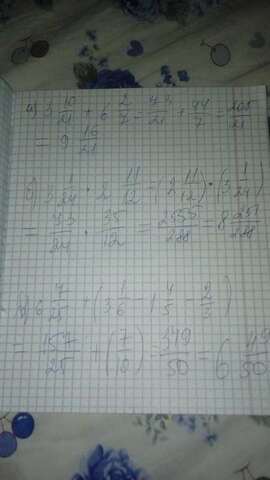 а) 3 10/21 + 6 2/7 = 73/21 + 44/7 = 205/21
= 9 16/21
б) 3 1/24 · 2 11/12 = (2 11/12) · (3 1/24)
= 73/24 · 35/12 = 2555/288 = 8 251/288
6 7/25 + (3 1/6 - 1 4/5 - 2/3)
= 157/25 + (7/10) = 349/50 = (6 49/50